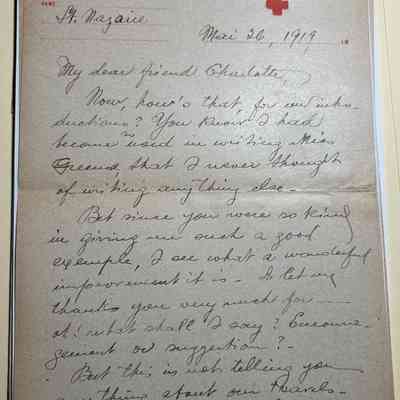 St. Nazaire
Mai 26, 1919
My dear friend Charlotte,
Now, how's that, for an intro-
duction? You know I had
become so used in writing Miss
that I never thought
of writing anything else-
But since you were so kind
in giving me such a good
example, I see what a wonderful
improvement it is - So let me
thank you very much for
oh! what shall I say? Encoura-
gement or suggestion? -
But this is not telling you
anything about our travels-